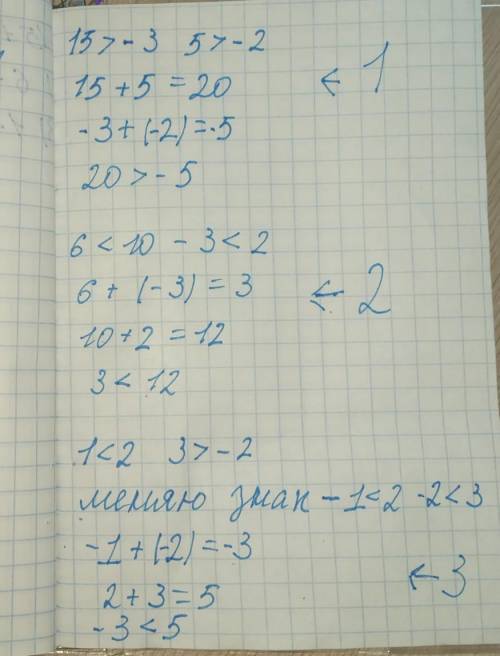 15>-3 5>-2
15+5=20 ← 1
-3+(-2)=-5
20>-5
6<10 -3<2
6+(-3)=3 ← 2
10+2=12
3<12
1<2 3>-2
меняю знак -1<2 -2<3
-1+(-2)=-3
2+3=5 ← 3
-3<5